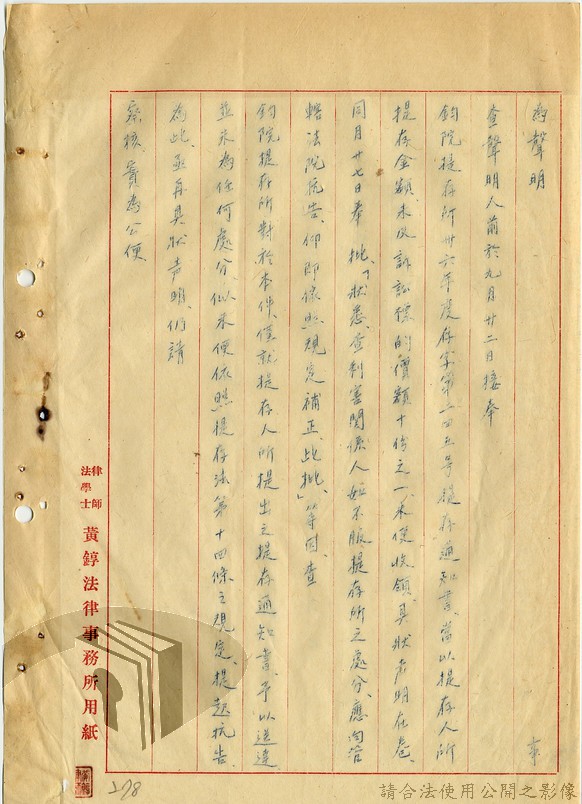 為聲明 事
查聲明人前於九月廿二日接奉
鈞院提存所卅六年度存字第二四五号提存通知書、當以提存人所
提存金額、未及訴訟標的價額十份之一、未便收領、具狀声明在卷、
同月廿七日奉 批、「狀悉、查利害關係人如不服提存所之處分、應向管
轄法院抗告、仰即依照規定補正、此批」、等因、查
鈞院提存所對於本件、僅就提存人所提出之提存通知書、予以送達
並未為任何處分、似未便依照提存法第十四條之規定、提起抗告、
為此亟再具狀声明、仍請
察核、實為公便
律師
法學士
黃錞法律事務所用紙
278
請合法使用公開之影像